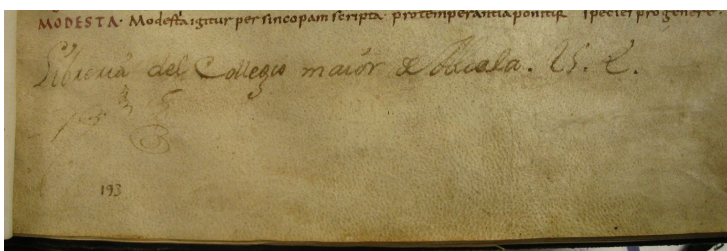 MODESTA· Modesta igitur per sincopam scripta· pro temperantia ponitur species pro genere
Libreria del Collegio maior de Alcala. 
193